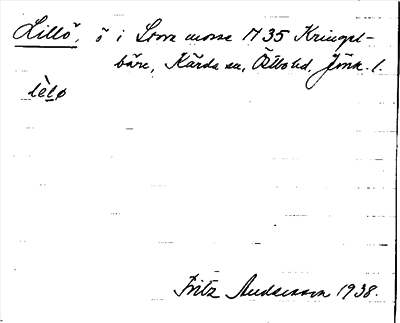 Lillö, ö i Stora mosse 1735 Kringel-
bäre, Kärda sn, Östbo hd. Jönk. l.
lèlø
Fritz Andersson 1938.